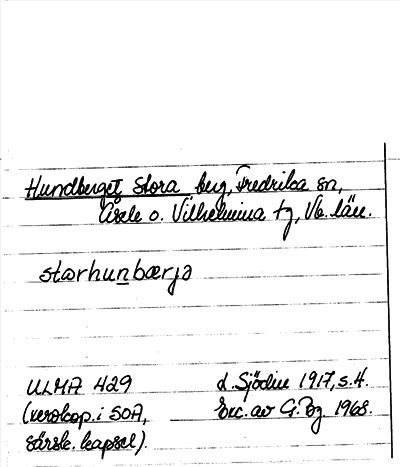 Hundberget, Stora berg, Fredrika sn,
Åsele o. Vilhelmina tg, Vb. län.
storhunbærja
ULMA 429
(xeroxkop. i SOA,
särsk. kapsel).
d. Sjödin 1917, s. 4.
Exc. av G. Bg. 1968.